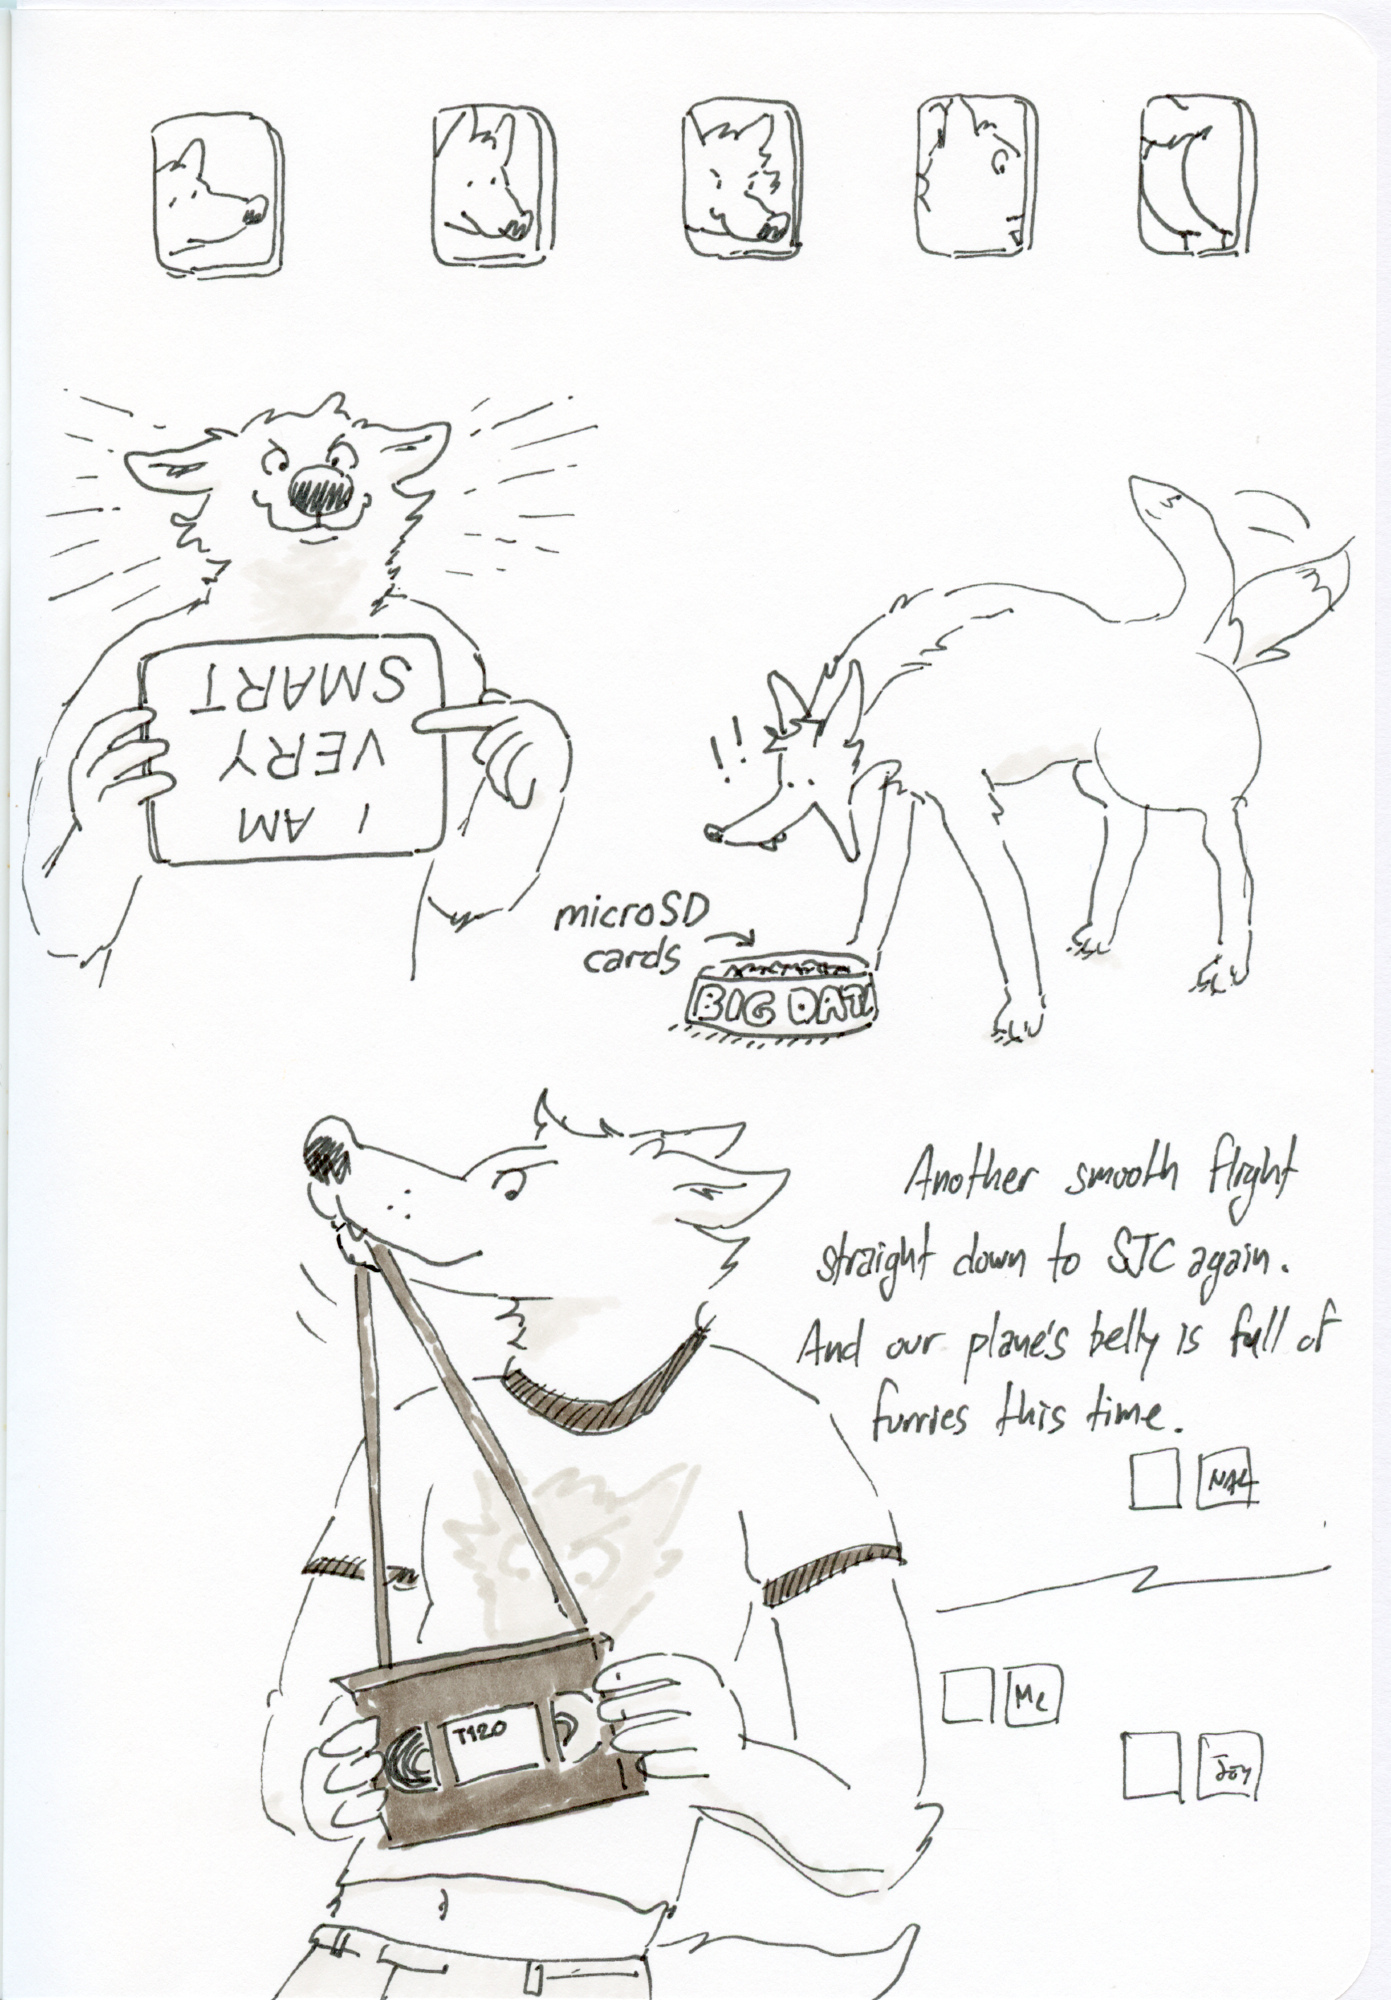 I AM
VERY
SMART
microSD
cards
BIG DATA
T120
Another smooth flight
straight down to SJC again.
And our plane's belly is full of
furries this time.
Me
Joy